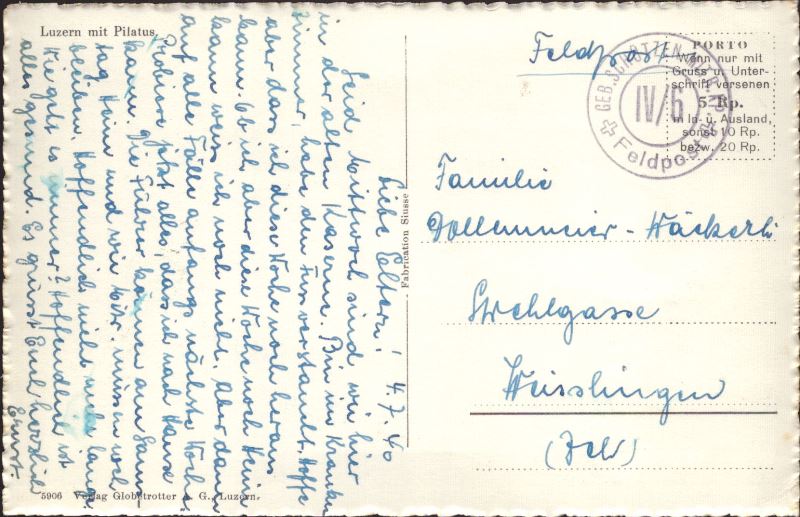 Luzern mit Pilatus
Liebe Eltern! 4.7.40
Seid Mittwoch sind wir hier
in der alten Kaserne. Bin im Kranken
zimmer, habe den Fuss verstaucht. Hoffe
aber dass ich diese Woche noch heraus
kann. Ob ich aber diese Woche noch Heim
kann weiss ich noch nicht. Aber dann
auf alle Fälle anfangs nächste Woche.
Probiere jetzt alles, dass ich nach Hause
kann. Die Führer kommen am Sams-
tag Heim und wir Mitr. müssen noch
bleiben. Hoffendlich nicht mehr lange.
Wie geht es immer? Hoffendlich ist
alles gesund. Es grüsst Euch herzlich
Ernst.
5906 Verlag Globetrotter A. G., Luzern.
Fabrication Suisse
Feldpost
GEB. SCHÜTZEN
IV/6
Feldpost
PORTO
Wenn nur mit
Gruss u. Unter-
schrift versehen
5 Rp.
in In- u. Ausland,
sonst 10 Rp.
bezw. 20 Rp.
Familie
Dollenmeier-Wäckerli
Strehlgasse
Weisslingen
(Zch)